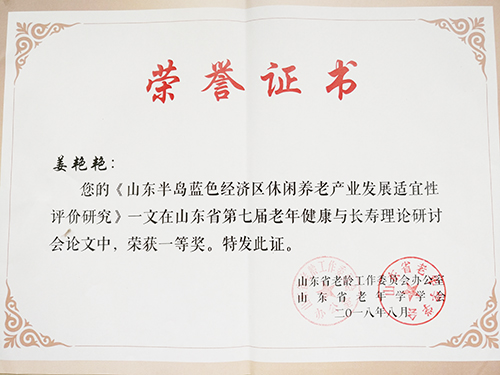 荣誉证书
姜艳艳：
您的《山东半岛蓝色经济区休闲养老产业发展适宜性
评价研究》一文在山东省第七届老年健康与长寿理论研讨
会论文中，荣获一等奖。特发此证。
山东省老龄工作委员会办公室
山东省老年学学会
二〇一八年八月